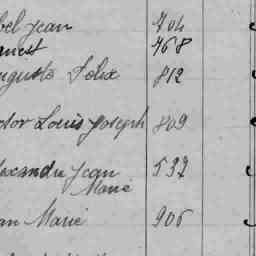 bel Jean 704
anest 768
uguste Felix 812
ctor Louis Joseph 809
lexandre Jean 532
Marie
an Marie 906